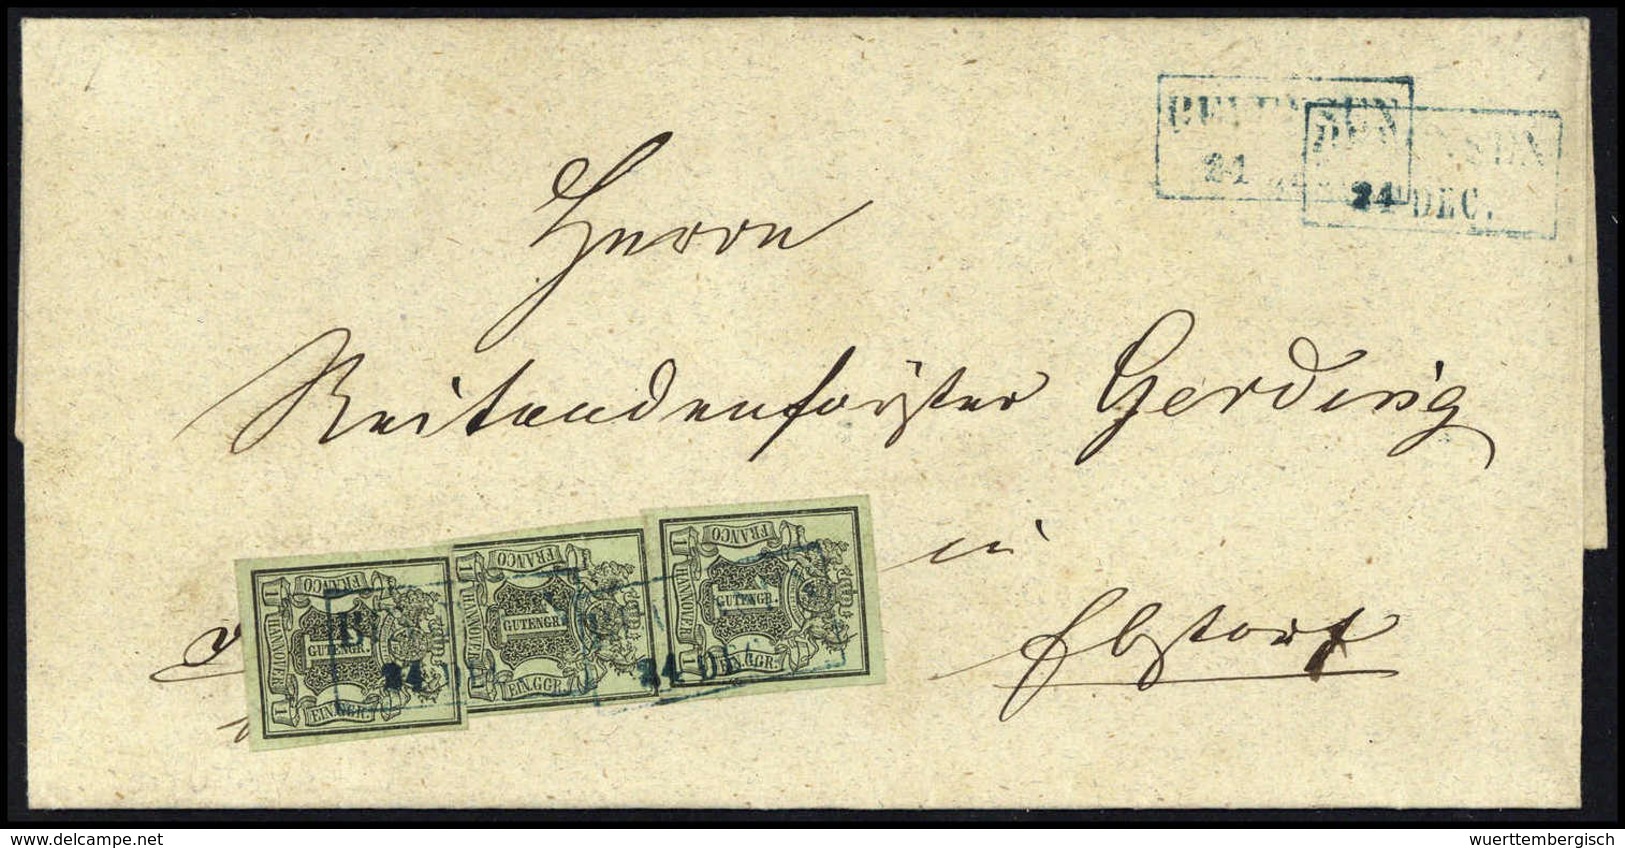 BEVENSEN
BEVENSEN
24
24 DEC.
Herrn
Reitendenförster Gerding
in
Ebstorf
FRANCO
HANNOVER
1
GUTENGR.
EIN.GGR.
24 DEC.
FRANCO
HANNOVER
1
GUTENGR.
EIN.GGR.
24 DEC.
FRANCO
HANNOVER
1
GUTENGR.
EIN.GGR.
©delcampe.net
wuerttembergisch